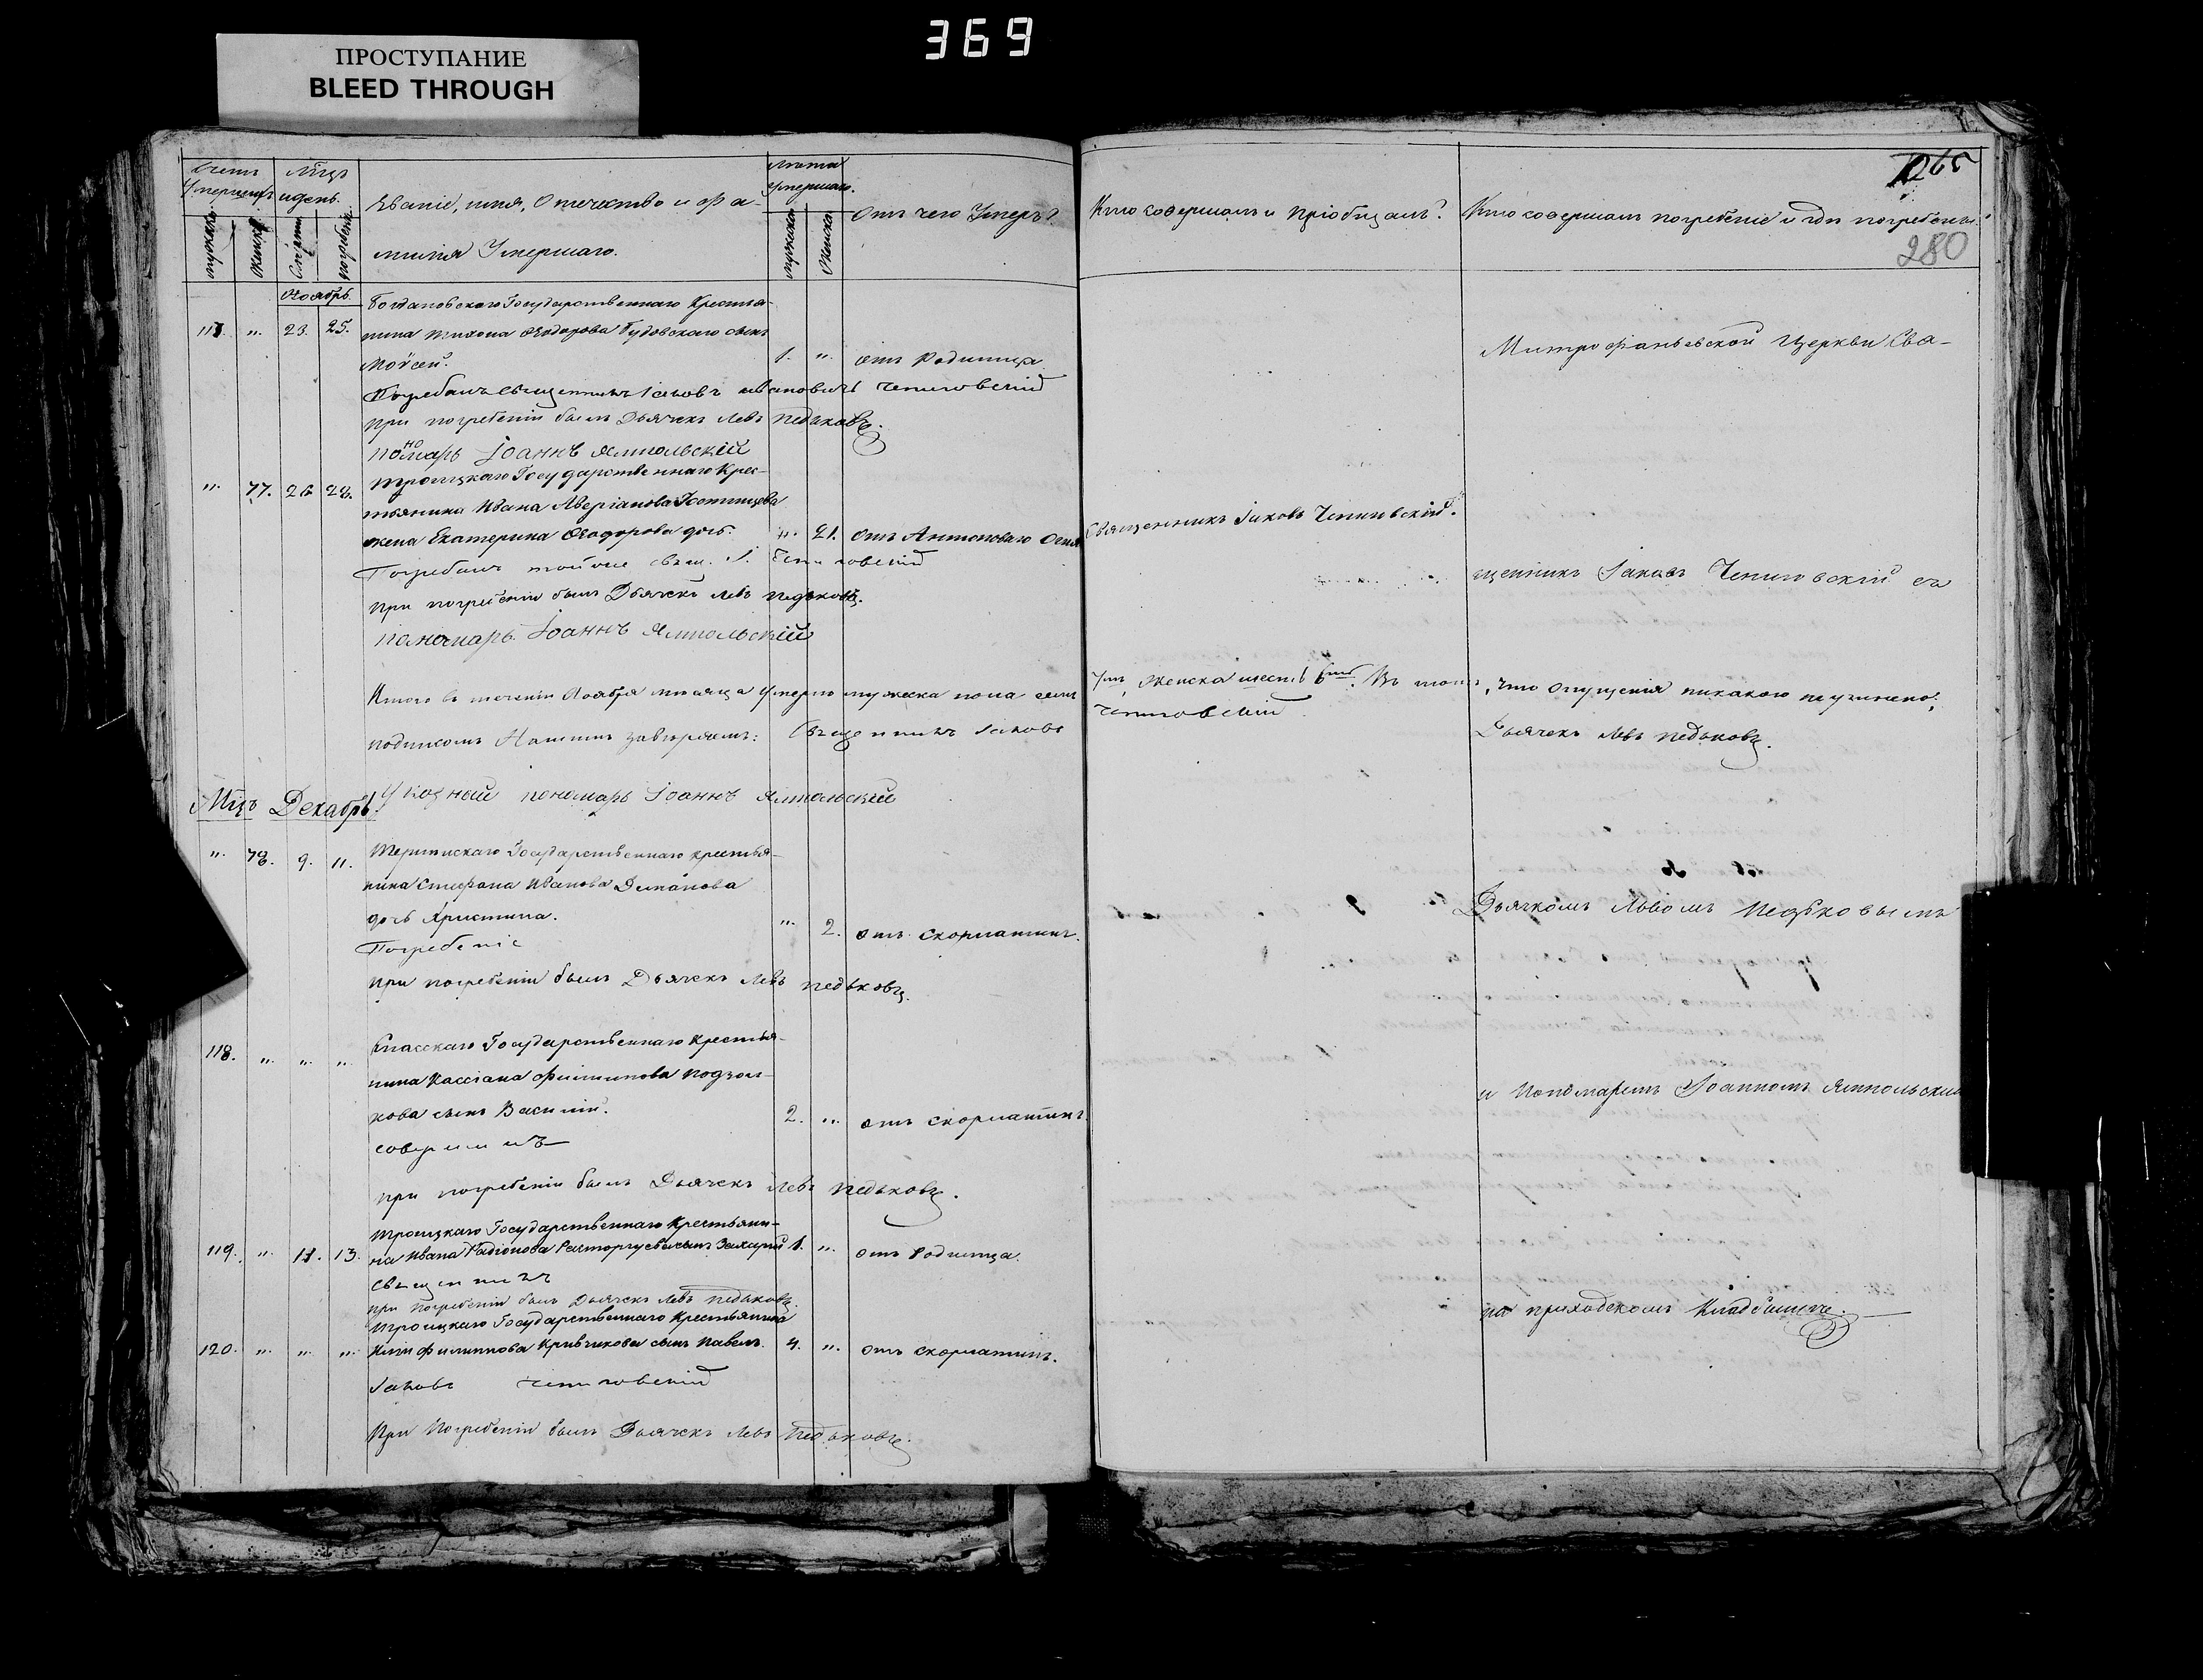 369
ПРОСТУПАНИЕ
BLEED THROUGH
265
280
Счетъ Умершихъ
Мѣсяцъ и день
мужеска
женска
смерти
погребенія
Званіе, имя, Отчество и фа-
милія Умершаго.
Лѣта Умершаго.
мужеска
женска
Отъ чего Умеръ?
Кто совершалъ и пріобщалъ?
Кто совершалъ погребеніе и гдѣ погребенъ?
Ноябрь
Государственнаго Крестья-
117. „ 23. 25. нина Ѳеодорова сынъ
Моѵсей. 1. „ отъ Родимца
Погребалъ Священникъ Іаковъ Ивановичъ
при погребеніи былъ Дьячекъ Левъ Педьковъ.
пономарь Іоаннъ Ямпольскій
Троицкаго Государственнаго Крес-
„ 77. 26 28. тьянина Ивана Аверіанова
жена Екатерина Ѳеодорова дочь. „ 21. отъ Антонова Огня
Погребалъ тойже свящ. І.
При погребеніи былъ Дьячекъ Левъ Педьковъ.
пономарь Іоаннъ Ямпольскій
Итого въ теченіи Ноября мѣсяца умерло мужеска пола семь
подписомъ Нашимъ завѣряемъ: Священникъ Іаковъ
Указный пономарь Іоаннъ Ямпольскій
Мцъ Декабрь
Государственнаго крестья-
„ 78. 9. 11. нина Стефана Иванова
дочь Христина. „ 2. отъ скорлатины.
Погребеніе
при погребеніи былъ Дьячекъ Левъ Педьковъ.
Спасскаго Государственнаго Крестья-
118. „ „ „ нина Кассіана Филипова
кова сынъ Василій. 2. „ отъ скорлатины.
совершилъ
при погребеніи былъ Дьячекъ Левъ Педьковъ.
Троицкаго Государственнаго Крестьяни-
119. „ 11. 13. на Ивана Радіонова Расторгуева сынъ Захарій 1. „ отъ Родимца.
Священникъ
при погребеніи былъ Дьячекъ Левъ Педьковъ.
Троицкаго Государственнаго Крестьянина
120. „ „ „ Филиппова Кривчикова сынъ Павелъ. 4. „ отъ скорлатины.
Іаковъ
При Погребеніи былъ Дьячекъ Левъ Педьковъ.
Митрофаньевской Церкви Свя-
Священникъ Іаковъ
щенникъ Іаковъ съ
женска шесть 6. Въ томъ, что опущенія никакого не учинено:
Дьячекъ Левъ Педьковъ.
Дьячкомъ Львомъ Педьковымъ
и Пономаремъ Іоанномъ Ямпольскимъ
на приходскомъ Кладбищѣ.